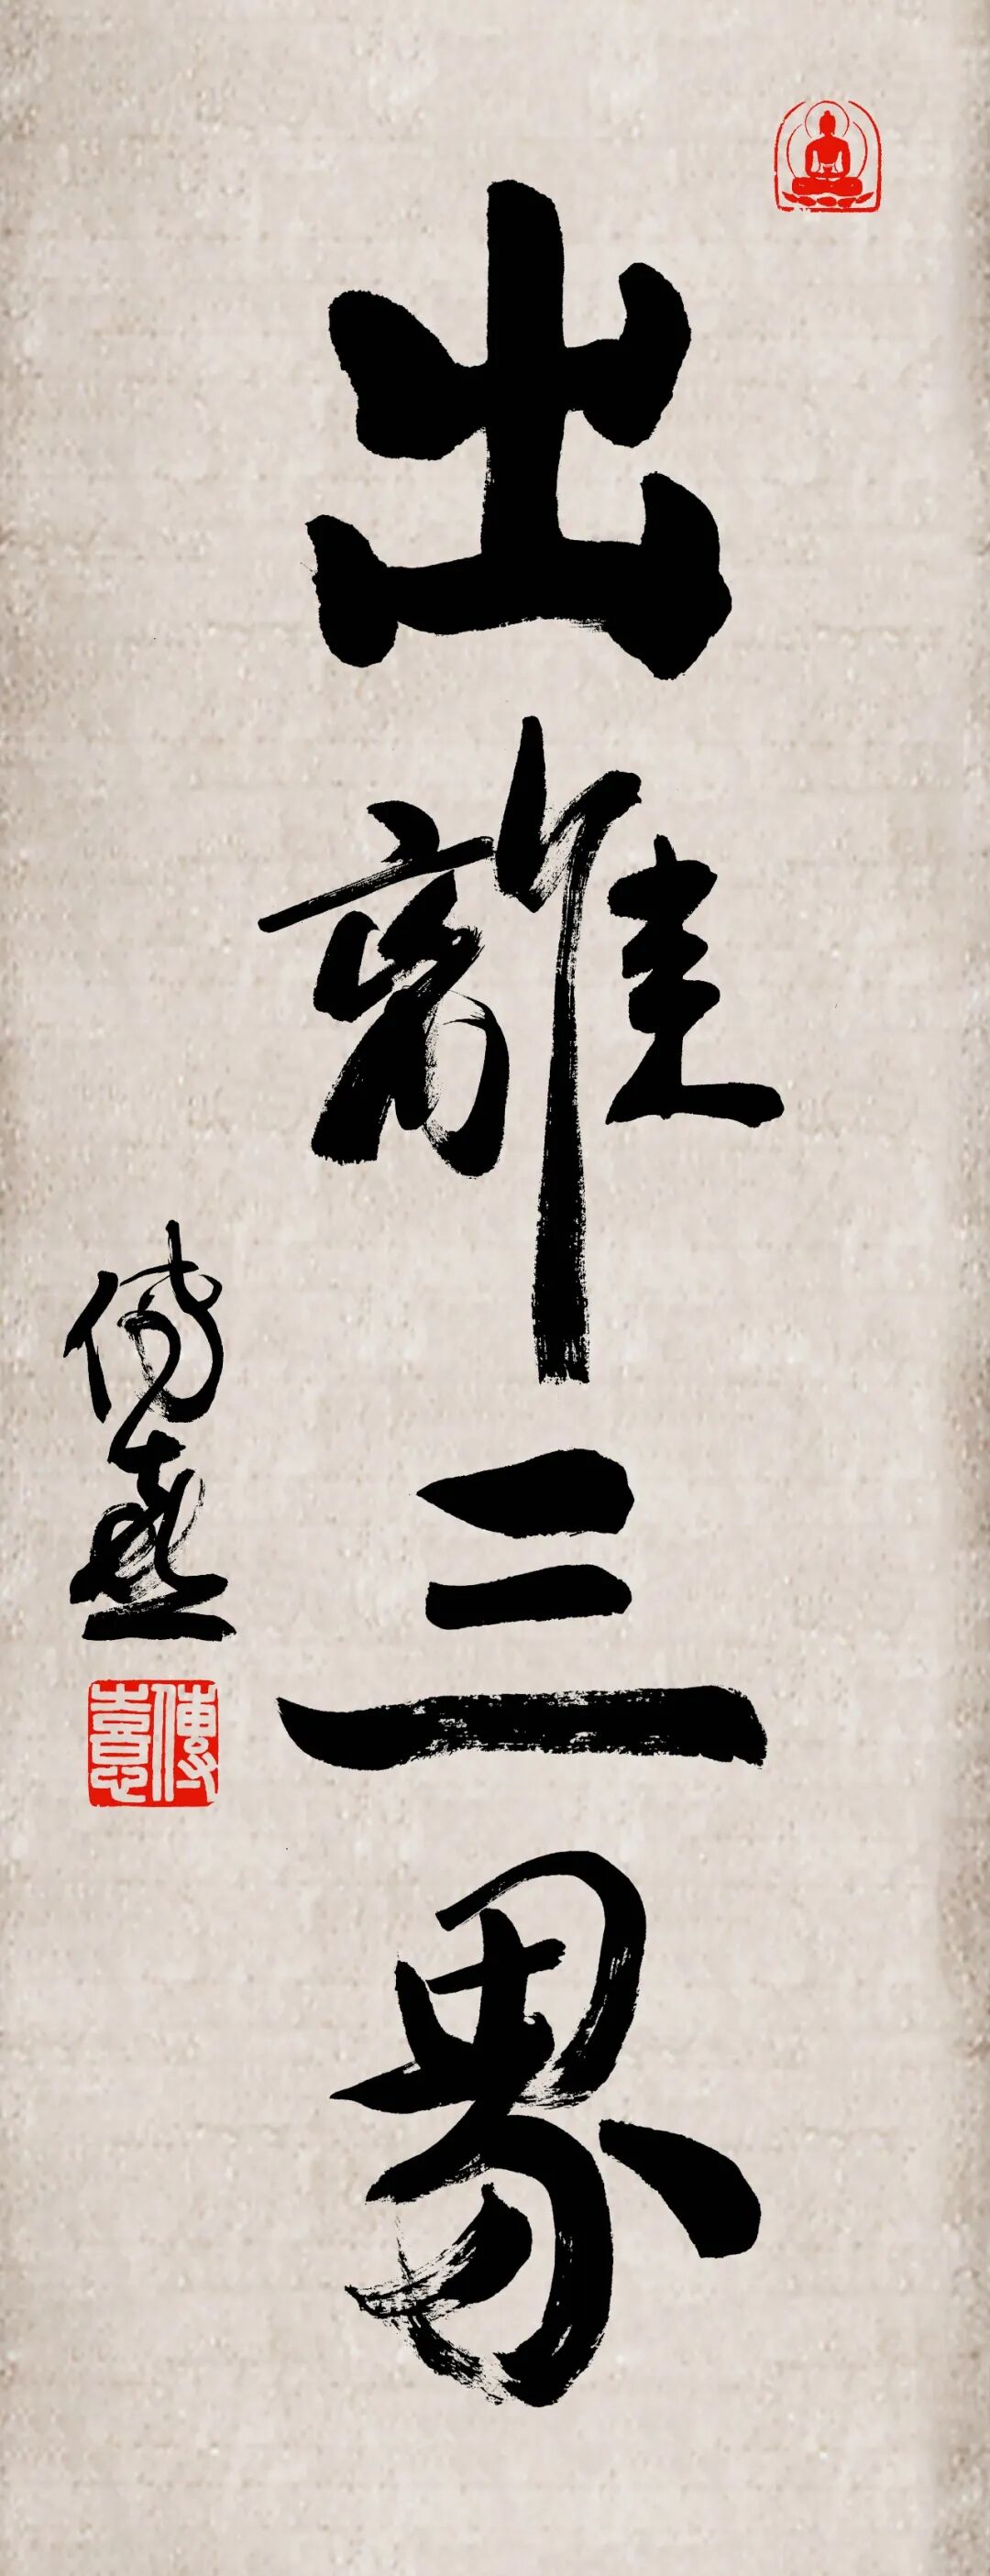 出離三界
傳喜
傳喜